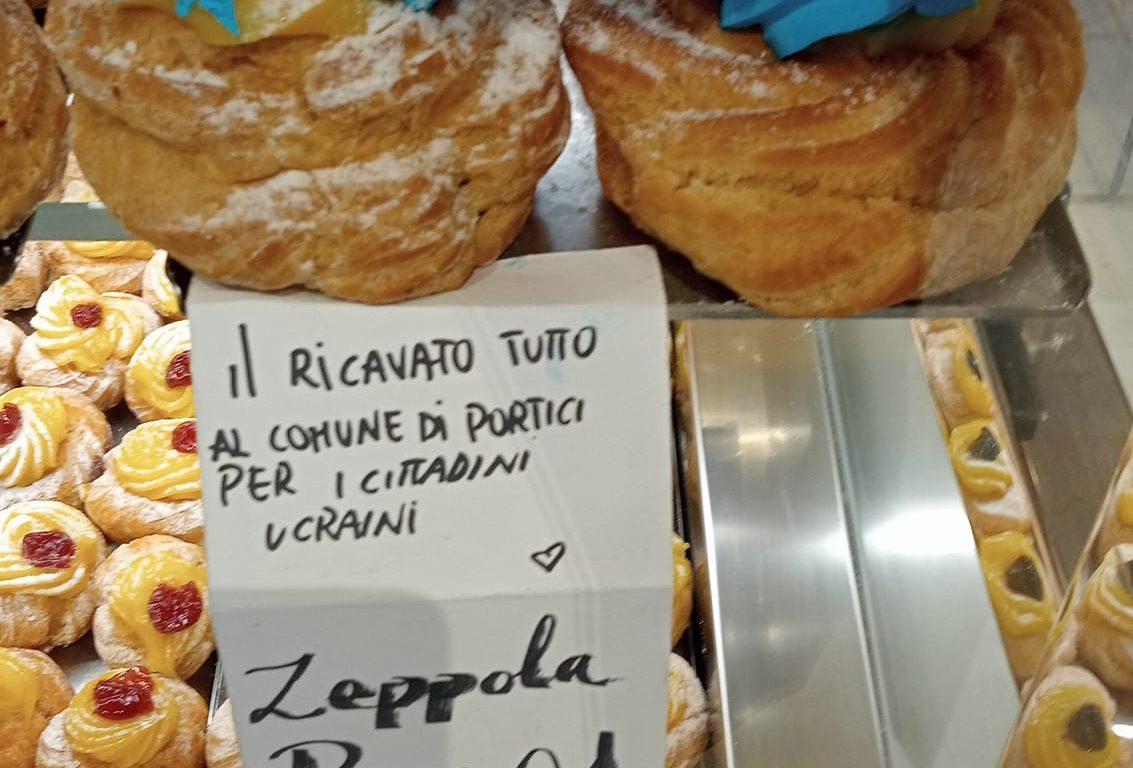 Il RiCAVATO TUTTO
AL COMUNE Di PORTICI
PER I CITTADINI
UCRAINi
Zeppola